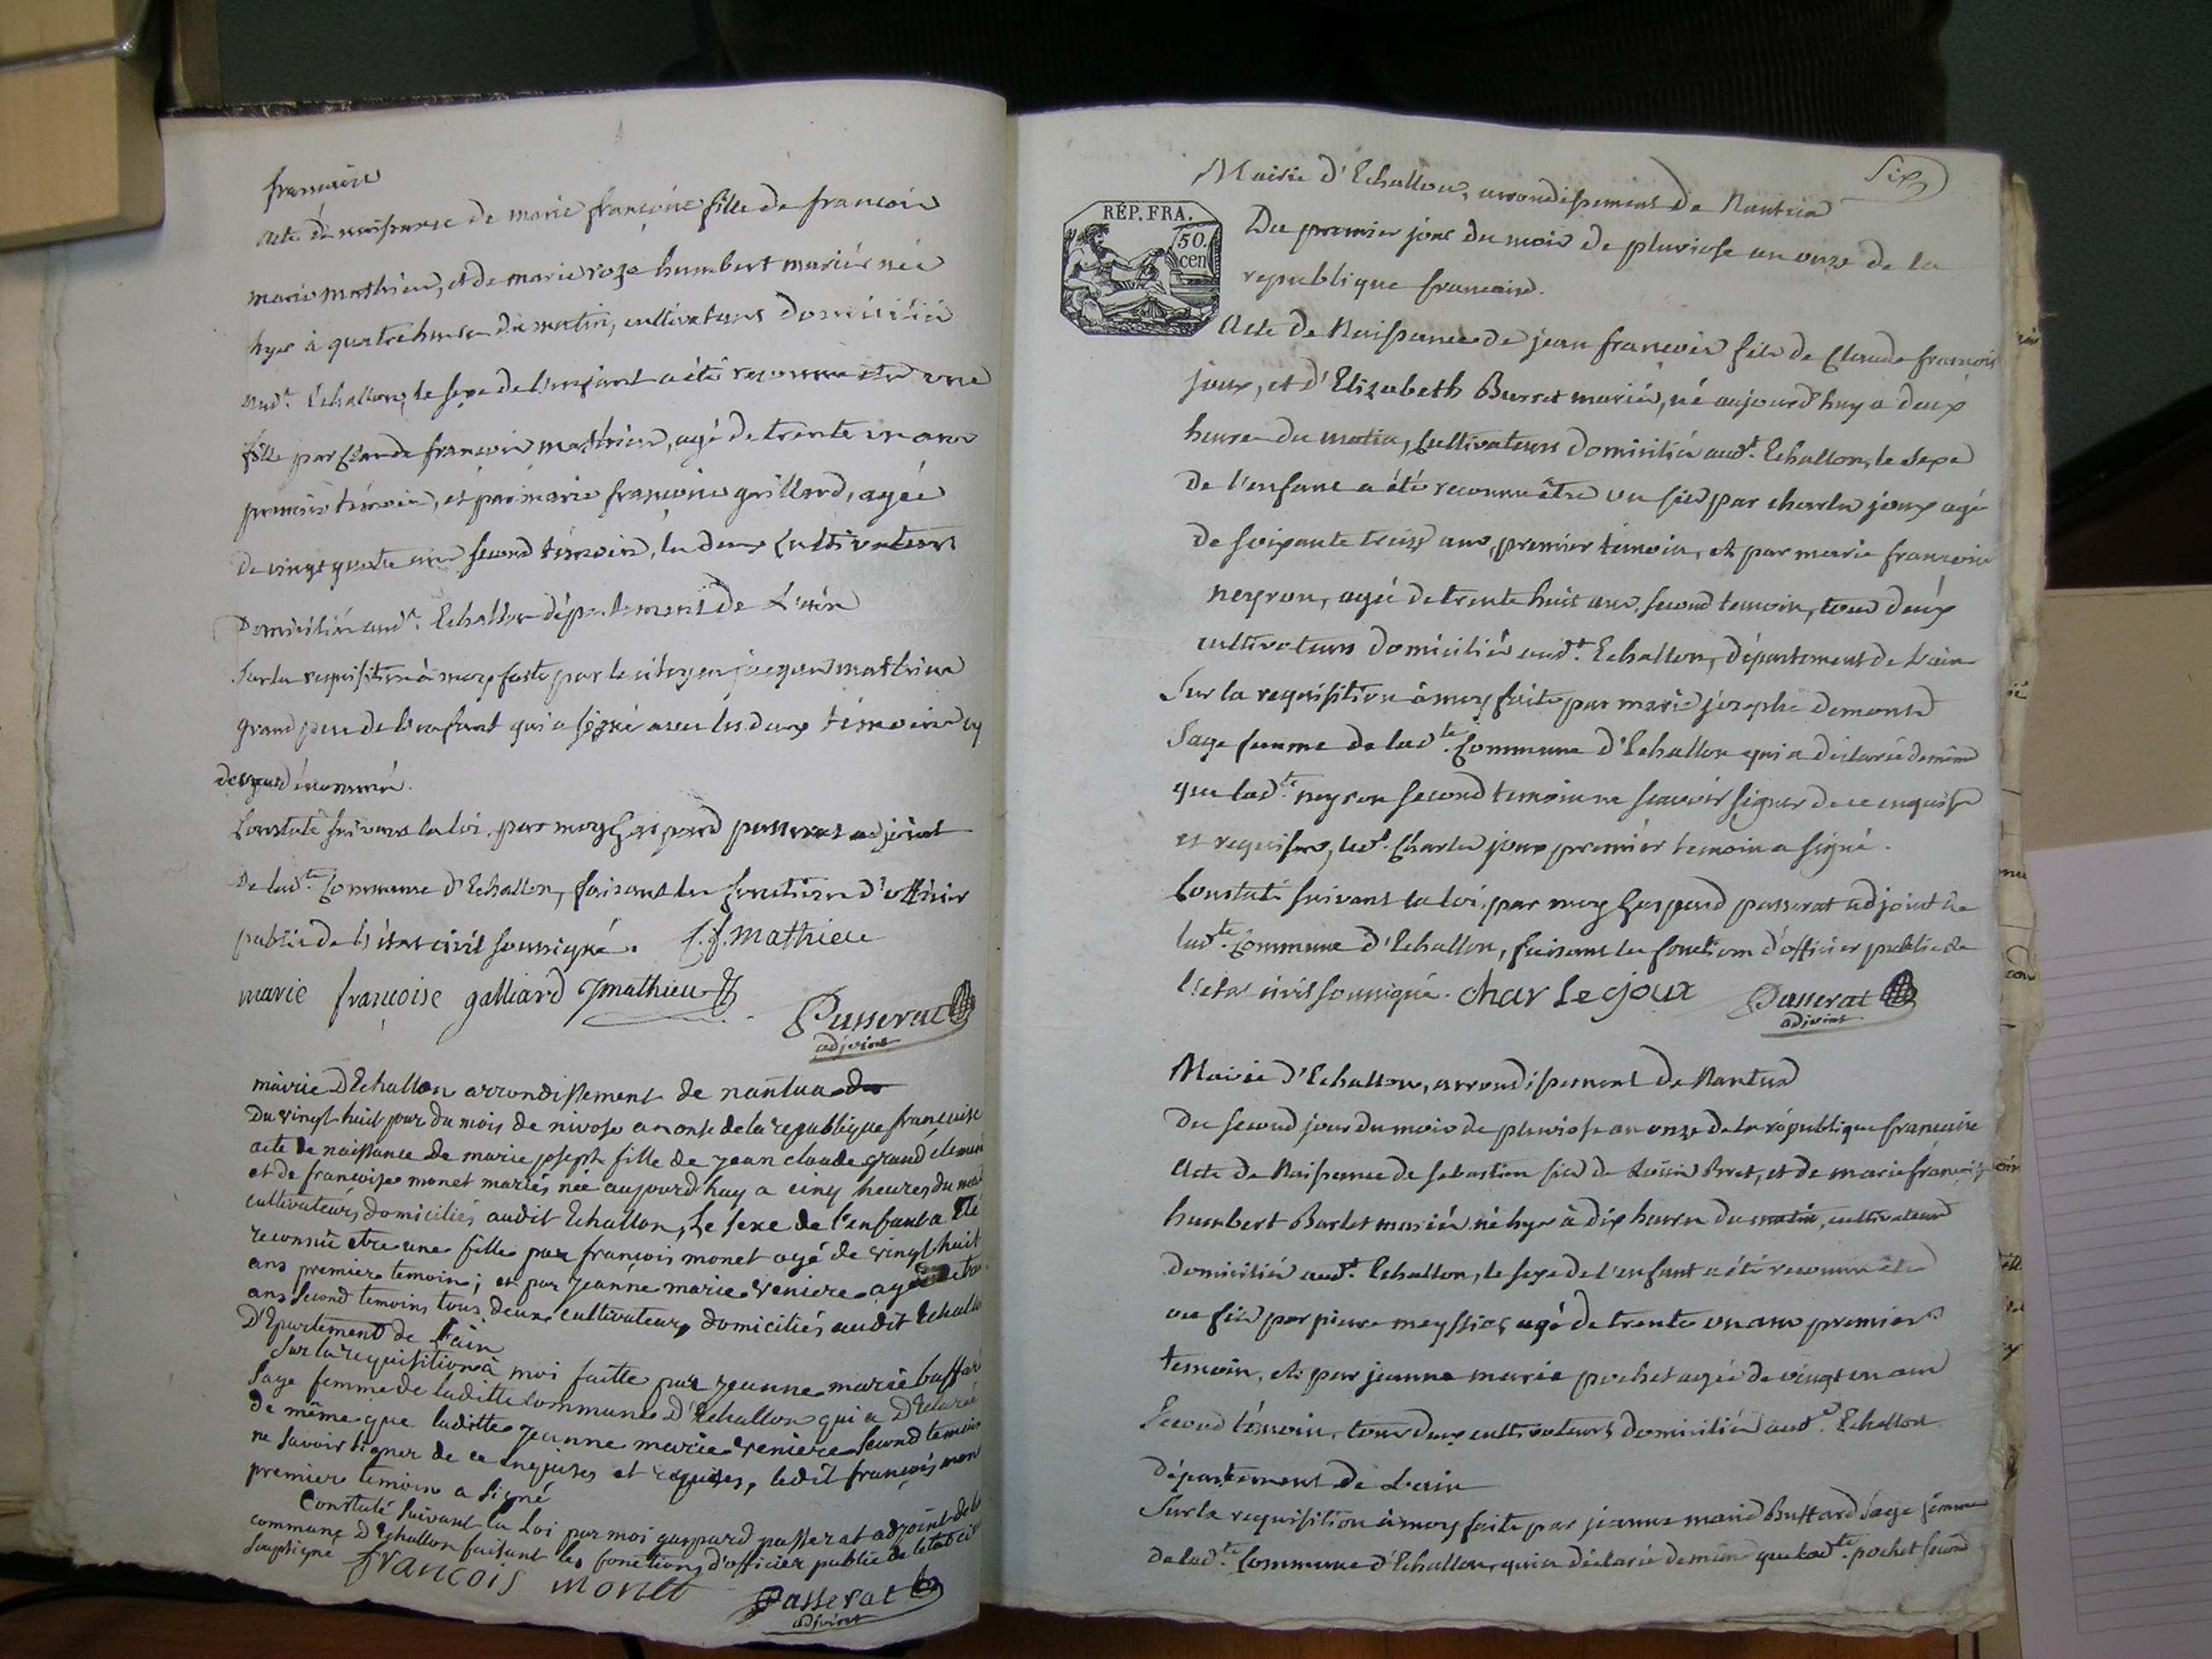 francaise
acte de naissance de marie françoise fille de francois
marie mathieu, et de marie roze humbert mariés née
hyer à quatre heures du matin, cultivateurs domiciliés
aud.t Echallon, le sexe de l'enfant a été reconnu etre une
fille par Claude francois mathieu, agé de trente un ans
premier témoin, et par marie françoise gaillard, agée
de vingt quatre ans second témoin, les deux Cultivateurs
Domiciliés aud.t Echallon département de L'ain
Sur la requisition à moy faite par le citoyen jacques mathieu
grand pere de l'enfant qui a signé avec les deux témoins cy
dessus dénommés.
Constaté suivant la loi, par moy Gaspard passerat adjoint
De lad.te Commune d'Echallon, faisant les fonctions d'officier
public de l'état civil soussigné. C. f. Mathieu
marie françoise galliard J mathieu
Passerat
adjoint
mairie D'Echallon arrondissement de nantua
Du vingt huit jour du mois de nivose an onse de la republique francaise
acte de naissance de marie joseph fille de jean claude grand clement
et de francoise monet mariés née aujourd'huy a cinq heures du mat
cultivateurs domiciliés audit Echallon, Le sexe de l'enfant a Eté
reconnu etre une fille par francois monet agé de vingt huit
ans premier temoin; et par jeanne marie veniere agée de
ans second temoins tous deux cultivateurs domiciliés audit Echallo
D'Epartement de Lain
Sur la requisition à moi faitte par jeanne marie buffar
Sage femme de laditte commune D'Echallon qui a D'Eclaré
de même que laditte jeanne marie veniere second temoin
ne savoir signer de ce enquises et requises, ledit françois mon
premier temoin a signé
Constaté suivant la Loi par moi gaspard passerat adjoint de la
commune D'Echallon faisant les fonctions d'officier public de letat ci
soussigné François monet
Passerat
adjoint
Six
Mairie d'Echallon, arrondissement de Nantua
RÉP. FRA.
50.
cen
Du premier jour du mois de pluviose an onze de la
republique francaise.
Acte de Naissance de jean francois fils de Claude francois
joux, et d'Elizabeth Burret mariés, né aujourd'huy a deux
heures du matin, Cultivateurs domiciliés aud.t Echallon, le sexe
de l'enfant a été reconnu être un fils par charles joux agé
de soixante treize ans, premier témoin, et par marie francoise
neyron, agée de trente huit ans, second temoin, tous deux
cultivateurs domiciliés aud.t Echallon, département de L'ain
Sur la requisition à moy faite par marie josephe demond
Sage femme de lad.te Commune d'Echallon qui a déclaré de même
que lad.te neyron second temoin ne scavoir signer de ce enquise
et requise, led.t Charles joux premier temoin a signé.
Constaté suivant la loi, par moy Gaspard passerat adjoint de
lad.te Commune d'Echallon, faisant les fonctions d'officier public de
l'état civil soussigné. Char le joux Passerat
adjoint
Mairie d'Echallon, arrondissement de Nantua
Du second jour du mois de pluviose an onze de la république francaise
Acte de Naissance de sebastien fils de Louis Bret, et de marie francoise
humbert Barlet mariés, né hyer à dix heures du matin, cultivateurs
domiciliés aud.t Echallon, le sexe de l'enfant a été reconnu etre
un fils par pierre meyssiat agé de trente un ans premier
temoin, et par jeanne marie pochet agée de vingt un ans
Second témoin, tous deux cultivateurs domiciliés aud.t Echallon
département de Lain
Sur la requisition à moy faite par jeanne marie Buffard sage femme
de lad.te Commune d'Echallon, qui a déclaré de même que lad.te pochet second